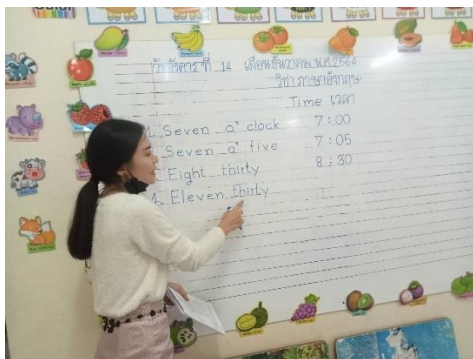 วันอังคารที่ 14 เดือนธันวาคม พ.ศ.2564
วิชาภาษาอังกฤษ
Time เวลา
1. Seven o' clock 7:00
Seven o' five 7:05
Eight thirty 8:30
4. Eleven thirty